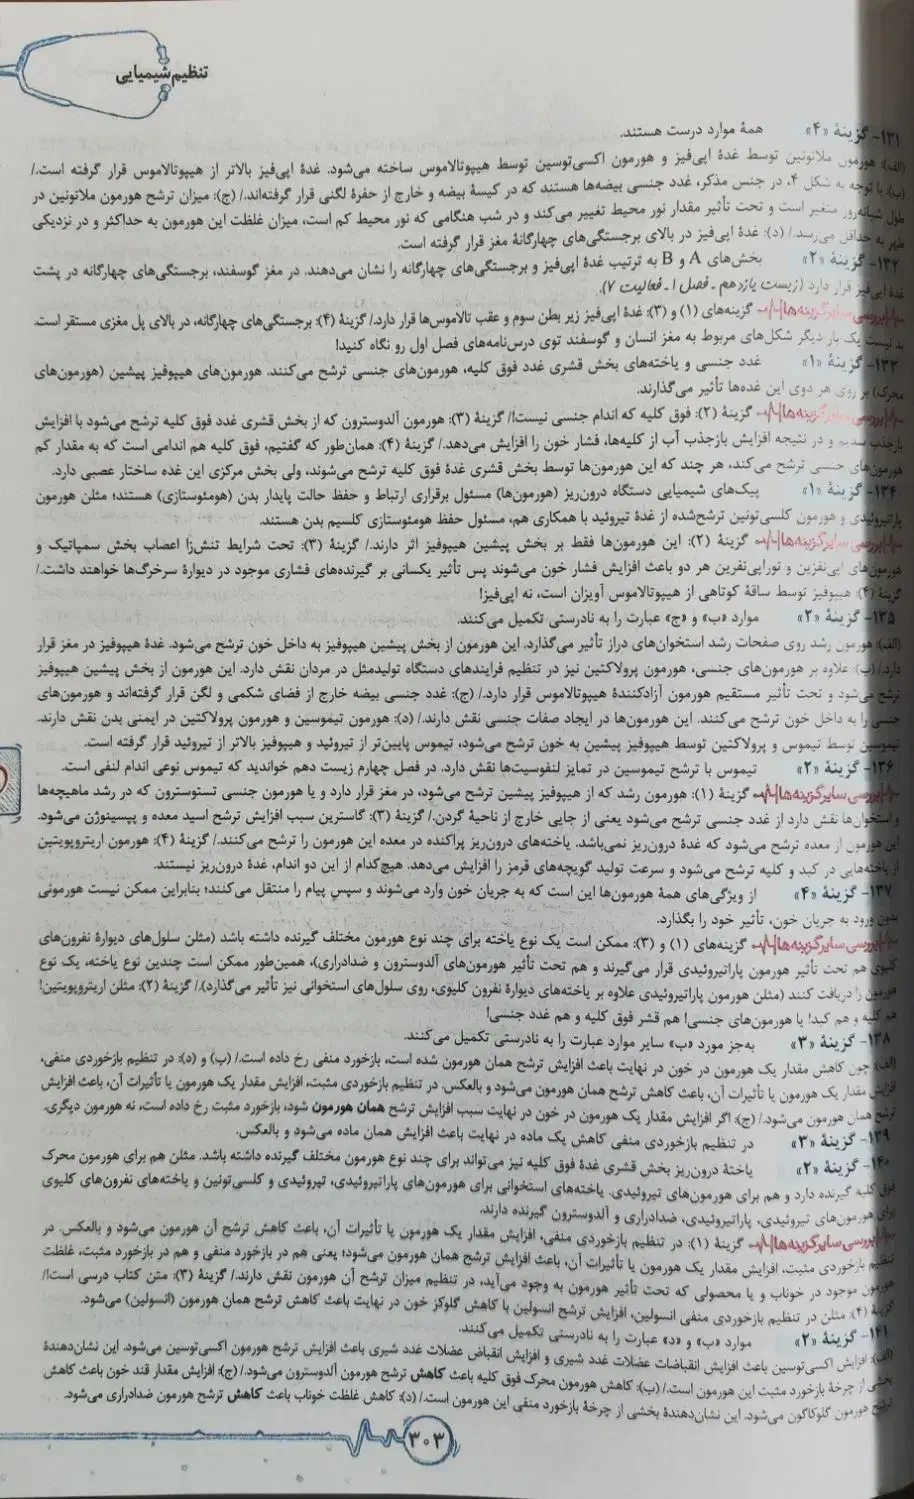 تنظیم شیمیایی
۱۳۱- گزینهٔ «۴» همهٔ موارد درست هستند.
(الف): هورمون ملاتونین توسط غدهٔ اپی‌فیز و هورمون اکسی‌توسین توسط هیپوتالاموس ساخته می‌شود. غدهٔ اپی‌فیز بالاتر از هیپوتالاموس قرار گرفته است./
(ب): با توجه به شکل ۴، در جنس مذکر، غدد جنسی بیضه‌ها هستند که در کیسهٔ بیضه و خارج از حفرهٔ لگنی قرار گرفته‌اند./ (ج): میزان ترشح هورمون ملاتونین در
طول شبانه‌روز متغیر است و تحت تأثیر مقدار نور محیط تغییر می‌کند و در شب هنگامی که نور محیط کم است، میزان غلظت این هورمون به حداکثر و در نزدیکی
ظهر به حداقل می‌رسد./ (د): غدهٔ اپی‌فیز در بالای برجستگی‌های چهارگانهٔ مغز قرار گرفته است.
۱۳۲- گزینهٔ «۲» بخش‌های A و B به ترتیب غدهٔ اپی‌فیز و برجستگی‌های چهارگانه را نشان می‌دهند. در مغز گوسفند، برجستگی‌های چهارگانه در پشت
غدهٔ اپی‌فیز قرار دارد (زیست یازدهم - فصل ۱ - فعالیت ۷).
بررسی سایر گزینه‌ها: گزینه‌های (۱) و (۳): غدهٔ اپی‌فیز زیر بطن سوم و عقب تالاموس‌ها قرار دارد./ گزینهٔ (۴): برجستگی‌های چهارگانه، در بالای پل مغزی مستقر است.
بد نیست یک بار دیگر شکل‌های مربوط به مغز انسان و گوسفند توی درس‌نامه‌های فصل اول رو نگاه کنید!
۱۳۳- گزینهٔ «۱» غدد جنسی و یاخته‌های بخش قشری غدد فوق کلیه، هورمون‌های جنسی ترشح می‌کنند. هورمون‌های هیپوفیز پیشین (هورمون‌های
محرک) بر روی هر دوی این غده‌ها تأثیر می‌گذارند.
بررسی سایر گزینه‌ها: گزینهٔ (۲): فوق کلیه که اندام جنسی نیست!/ گزینهٔ (۳): هورمون آلدوسترون که از بخش قشری غدد فوق کلیه ترشح می‌شود با افزایش
بازجذب سدیم و در نتیجه افزایش بازجذب آب از کلیه‌ها، فشار خون را افزایش می‌دهد./ گزینهٔ (۴): همان‌طور که گفتیم، فوق کلیه هم اندامی است که به مقدار کم
هورمون‌های جنسی ترشح می‌کند، هر چند که این هورمون‌ها توسط بخش قشری غدهٔ فوق کلیه ترشح می‌شوند، ولی بخش مرکزی این غده ساختار عصبی دارد.
۱۳۴- گزینهٔ «۱» پیک‌های شیمیایی دستگاه درون‌ریز (هورمون‌ها) مسئول برقراری ارتباط و حفظ حالت پایدار بدن (هومئوستازی) هستند؛ مثلن هورمون
پاراتیروئیدی و هورمون کلسی‌تونین ترشح‌شده از غدهٔ تیروئید با همکاری هم، مسئول حفظ هومئوستازی کلسیم بدن هستند.
بررسی سایر گزینه‌ها: گزینهٔ (۲): این هورمون‌ها فقط بر بخش پیشین هیپوفیز اثر دارند./ گزینهٔ (۳): تحت شرایط تنش‌زا اعصاب بخش سمپاتیک و
هورمون‌های اپی‌نفرین و نوراپی‌نفرین هر دو باعث افزایش فشار خون می‌شوند پس تأثیر یکسانی بر گیرنده‌های فشاری موجود در دیوارهٔ سرخرگ‌ها خواهند داشت./
گزینهٔ (۴): هیپوفیز توسط ساقهٔ کوتاهی از هیپوتالاموس آویزان است، نه اپی‌فیز!
۱۳۵- گزینهٔ «۲» موارد «ب» و «ج» عبارت را به نادرستی تکمیل می‌کنند.
(الف): هورمون رشد روی صفحات رشد استخوان‌های دراز تأثیر می‌گذارد. این هورمون از بخش پیشین هیپوفیز به داخل خون ترشح می‌شود. غدهٔ هیپوفیز در مغز قرار
دارد./ (ب): علاوه بر هورمون‌های جنسی، هورمون پرولاکتین نیز در تنظیم فرایندهای دستگاه تولیدمثل در مردان نقش دارد. این هورمون از بخش پیشین هیپوفیز
ترشح می‌شود و تحت تأثیر مستقیم هورمون آزادکنندهٔ هیپوتالاموس قرار دارد./ (ج): غدد جنسی بیضه خارج از فضای شکمی و لگن قرار گرفته‌اند و هورمون‌های
جنسی را به داخل خون ترشح می‌کنند. این هورمون‌ها در ایجاد صفات جنسی نقش دارند./ (د): هورمون تیموسین و هورمون پرولاکتین در ایمنی بدن نقش دارند.
تیموسین توسط تیموس و پرولاکتین توسط هیپوفیز پیشین به خون ترشح می‌شود، تیموس پایین‌تر از تیروئید و هیپوفیز بالاتر از تیروئید قرار گرفته است.
۱۳۶- گزینهٔ «۲» تیموس با ترشح تیموسین در تمایز لنفوسیت‌ها نقش دارد. در فصل چهارم زیست دهم خواندید که تیموس نوعی اندام لنفی است.
بررسی سایر گزینه‌ها: گزینهٔ (۱): هورمون رشد که از هیپوفیز پیشین ترشح می‌شود، در مغز قرار دارد و یا هورمون جنسی تستوسترون که در رشد ماهیچه‌ها
و استخوان‌ها نقش دارد از غدد جنسی ترشح می‌شود یعنی از جایی خارج از ناحیهٔ گردن./ گزینهٔ (۳): گاسترین سبب افزایش ترشح اسید معده و پپسینوژن می‌شود.
این هورمون از معده ترشح می‌شود که غدهٔ درون‌ریز نمی‌باشد. یاخته‌های درون‌ریز پراکنده در معده این هورمون را ترشح می‌کنند./ گزینهٔ (۴): هورمون اریتروپویتین
از یاخته‌هایی در کبد و کلیه ترشح می‌شود و سرعت تولید گویچه‌های قرمز را افزایش می‌دهد. هیچ‌کدام از این دو اندام، غدهٔ درون‌ریز نیستند.
۱۳۷- گزینهٔ «۴» از ویژگی‌های همهٔ هورمون‌ها این است که به جریان خون وارد می‌شوند و سپس پیام را منتقل می‌کنند؛ بنابراین ممکن نیست هورمونی
بدون ورود به جریان خون، تأثیر خود را بگذارد.
بررسی سایر گزینه‌ها: گزینه‌های (۱) و (۳): ممکن است یک نوع یاخته برای چند نوع هورمون مختلف گیرنده داشته باشد (مثلن سلول‌های دیوارهٔ نفرون‌های
کلیوی هم تحت تأثیر هورمون پاراتیروئیدی قرار می‌گیرند و هم تحت تأثیر هورمون‌های آلدوسترون و ضدادراری)، همین‌طور ممکن است چندین نوع یاخته، یک نوع
هورمون را دریافت کنند (مثلن هورمون پاراتیروئیدی علاوه بر یاخته‌های دیوارهٔ نفرون کلیوی، روی سلول‌های استخوانی نیز تأثیر می‌گذارد)./ گزینهٔ (۲): مثلن اریتروپویتین!
هم کلیه و هم کبد! یا هورمون‌های جنسی! هم قشر فوق کلیه و هم غدد جنسی!
۱۳۸- گزینهٔ «۳» به‌جز مورد «ب» سایر موارد عبارت را به نادرستی تکمیل می‌کنند.
(الف): چون کاهش مقدار یک هورمون در خون در نهایت باعث افزایش ترشح همان هورمون شده است، بازخورد منفی رخ داده است./ (ب) و (د): در تنظیم بازخوردی منفی،
افزایش مقدار یک هورمون یا تأثیرات آن، باعث کاهش ترشح همان هورمون می‌شود و بالعکس. در تنظیم بازخوردی مثبت، افزایش مقدار یک هورمون یا تأثیرات آن، باعث افزایش
ترشح همان هورمون می‌شود./ (ج): اگر افزایش مقدار یک هورمون در خون در نهایت سبب افزایش ترشح همان هورمون شود، بازخورد مثبت رخ داده است، نه هورمون دیگری.
۱۳۹- گزینهٔ «۳» در تنظیم بازخوردی منفی کاهش یک ماده در نهایت باعث افزایش همان ماده می‌شود و بالعکس.
۱۴۰- گزینهٔ «۲» یاختهٔ درون‌ریز بخش قشری غدهٔ فوق کلیه نیز می‌تواند برای چند نوع هورمون مختلف گیرنده داشته باشد. مثلن هم برای هورمون محرک
فوق کلیه گیرنده دارد و هم برای هورمون‌های تیروئیدی. یاخته‌های استخوانی برای هورمون‌های پاراتیروئیدی، تیروئیدی و کلسی‌تونین و یاخته‌های نفرون‌های کلیوی
برای هورمون‌های تیروئیدی، پاراتیروئیدی، ضدادراری و آلدوسترون گیرنده دارند.
بررسی سایر گزینه‌ها: گزینهٔ (۱): در تنظیم بازخوردی منفی، افزایش مقدار یک هورمون یا تأثیرات آن، باعث کاهش ترشح آن هورمون می‌شود و بالعکس. در
تنظیم بازخوردی مثبت، افزایش مقدار یک هورمون یا تأثیرات آن، باعث افزایش ترشح همان هورمون می‌شود؛ یعنی هم در بازخورد منفی و هم در بازخورد مثبت، غلظت
هورمون موجود در خوناب و یا محصولی که تحت تأثیر هورمون به وجود می‌آید، در تنظیم میزان ترشح آن هورمون نقش دارند./ گزینهٔ (۳): متن کتاب درسی است!/
گزینهٔ (۴): مثلن در تنظیم بازخوردی منفی انسولین، افزایش ترشح انسولین با کاهش گلوکز خون در نهایت باعث کاهش ترشح همان هورمون (انسولین) می‌شود.
۱۴۱- گزینهٔ «۲» موارد «ب» و «د» عبارت را به نادرستی تکمیل می‌کنند.
(الف): افزایش اکسی‌توسین باعث افزایش انقباضات عضلات غدد شیری و افزایش انقباض عضلات غدد شیری باعث افزایش ترشح هورمون اکسی‌توسین می‌شود. این نشان‌دهندهٔ
بخشی از چرخهٔ بازخورد مثبت این هورمون است./ (ب): کاهش هورمون محرک فوق کلیه باعث کاهش ترشح هورمون آلدوسترون می‌شود./ (ج): افزایش مقدار قند خون باعث کاهش
ترشح هورمون گلوکاگون می‌شود. این نشان‌دهندهٔ بخشی از چرخهٔ بازخورد منفی این هورمون است./ (د): کاهش غلظت خوناب باعث کاهش ترشح هورمون ضدادراری می‌شود.
۳۰۳